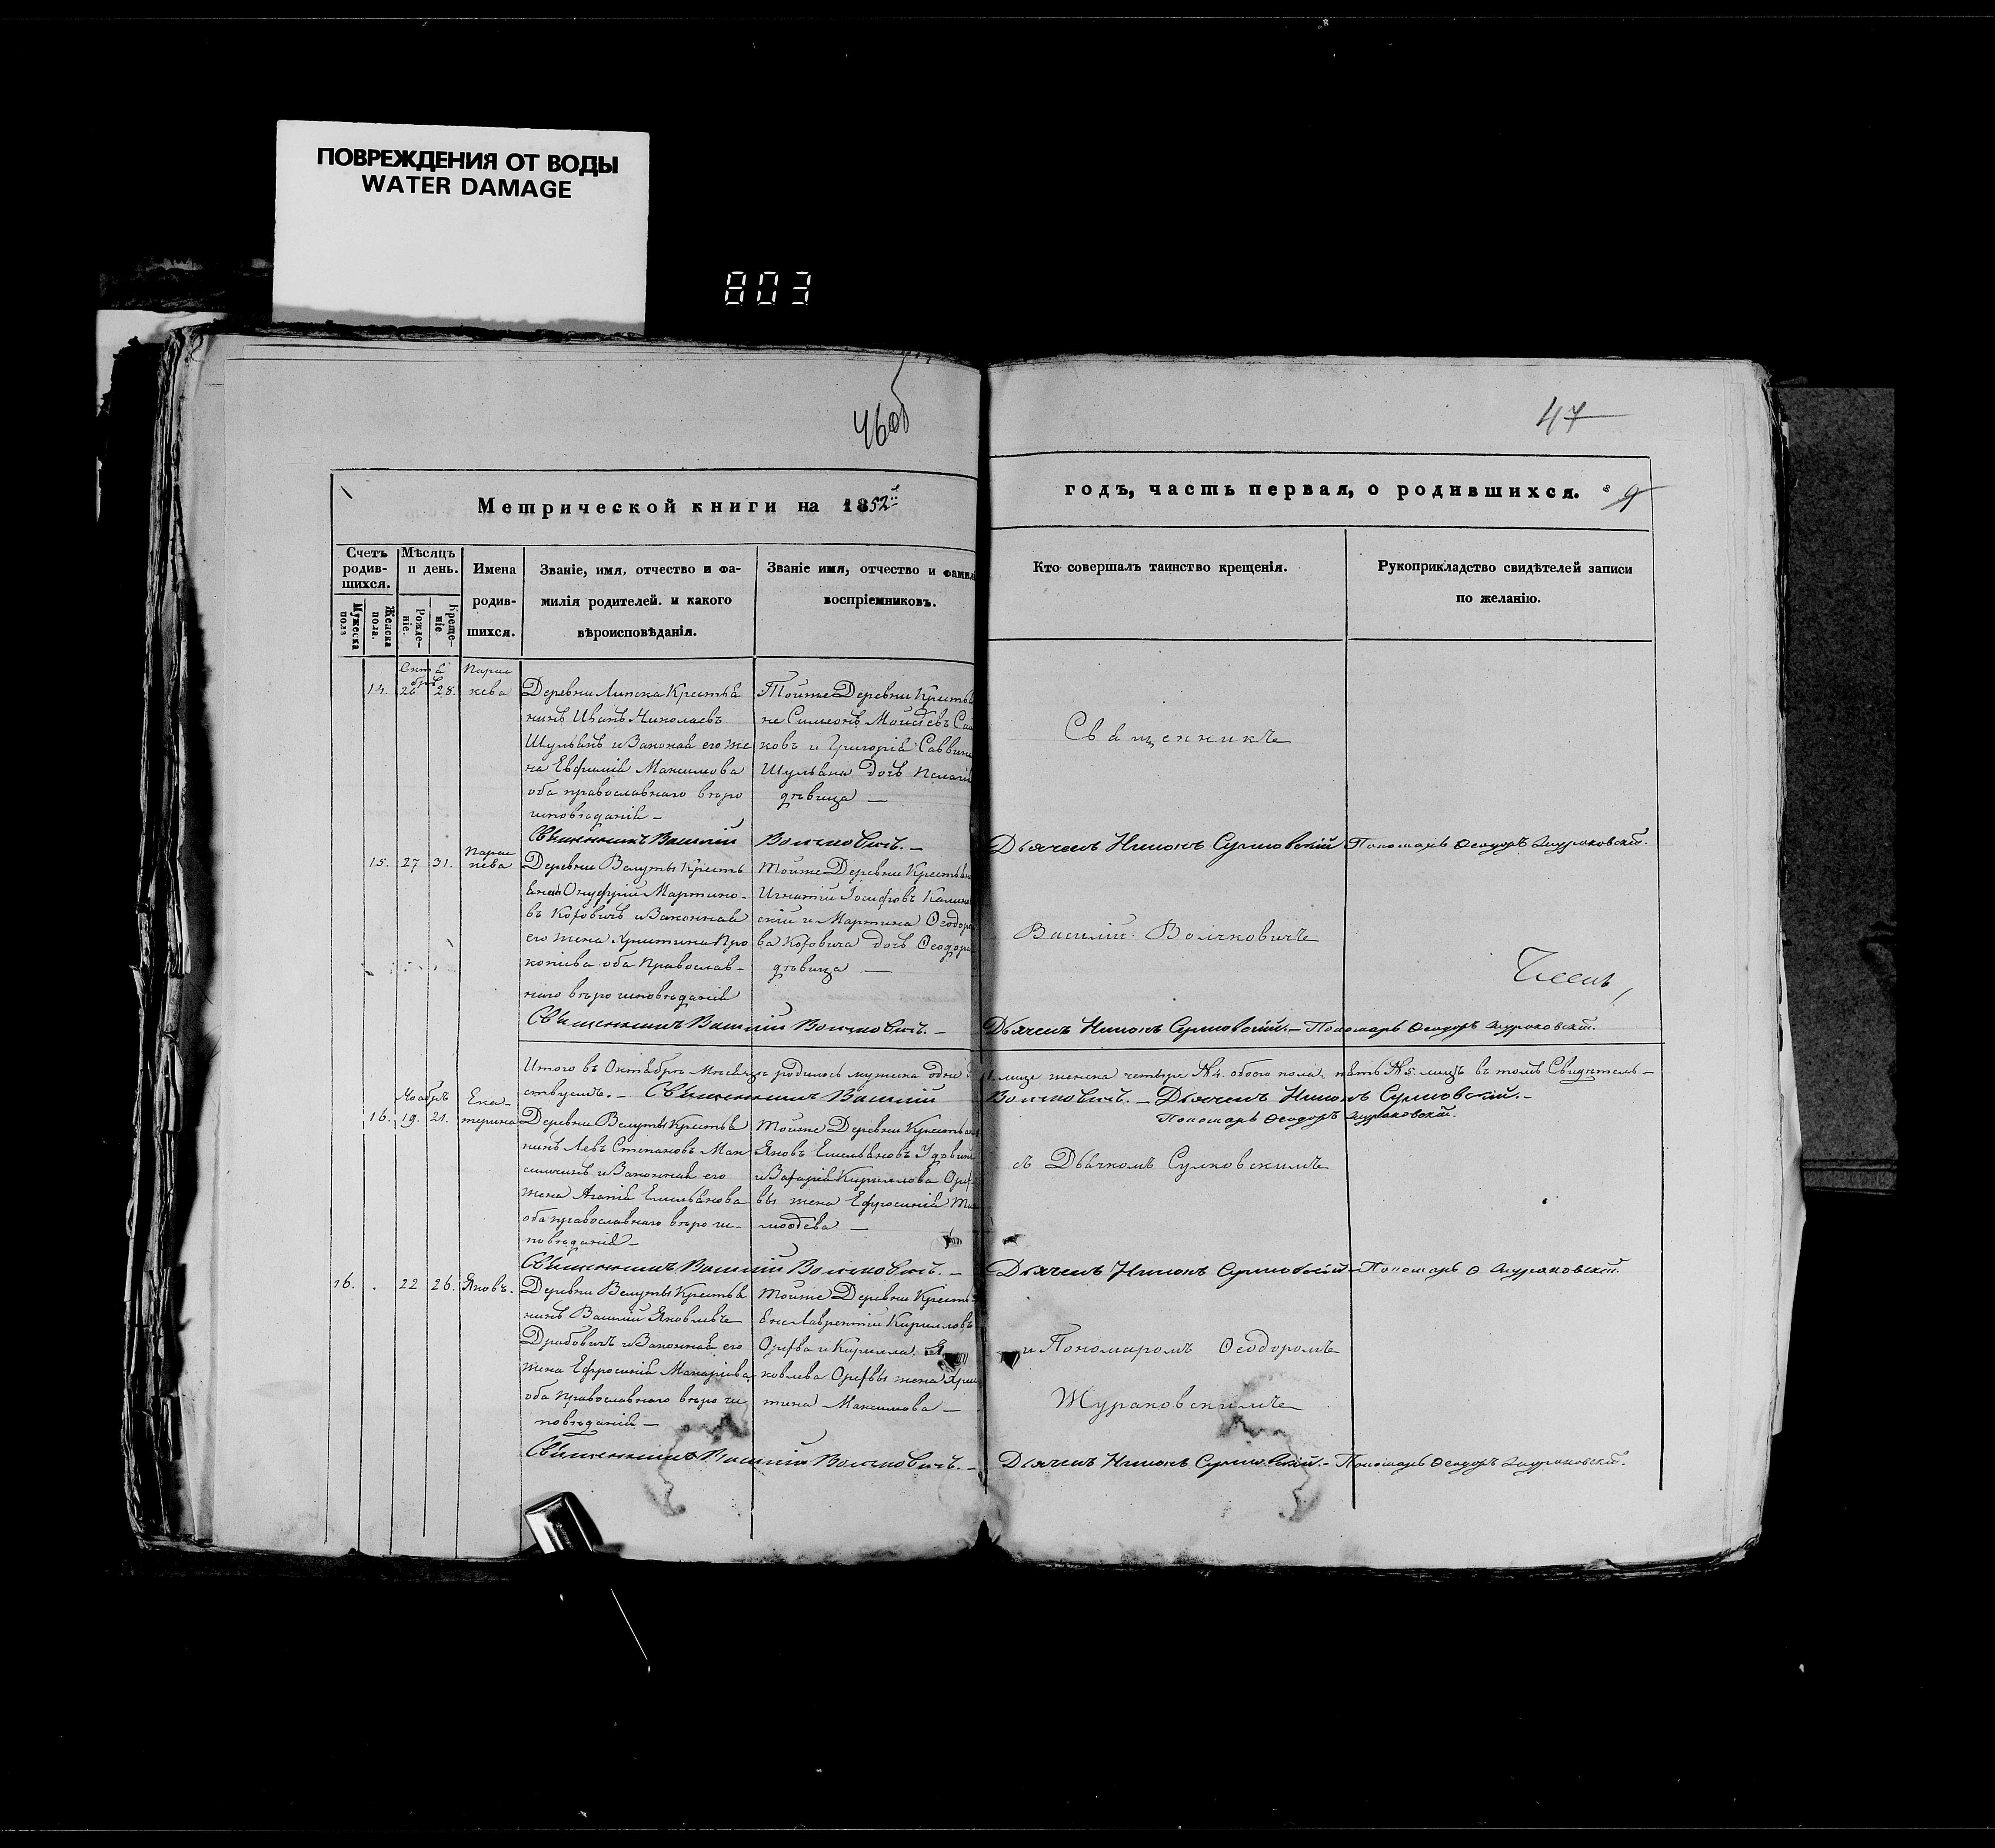 ПОВРЕЖДЕНИЯ ОТ ВОДЫ
WATER DAMAGE
803
46об
47
Метрической книги на 1852й
годъ, часть первая, о родившихся.
9
Счетъ родив-шихся.
Мужеска пола
Женска пола.
Мѣсяцъ и день.
Рожде-ніе.
Креще-ніе.
Имена
родив-
шихся.
Званіе, имя, отчество и фа-
милія родителей. и какого
вѣроисповѣданія.
Званіе имя, отчество и фамил
воспріемниковъ.
Кто совершалъ таинство крещенія.
Рукоприкладство свидѣтелей записи
по желанію.
14. 26 28.
Парас
кева
Деревни Липска Крестья
нинъ Иванъ Николаевъ
Шульякъ и Законная его же
на Евфимія Максимова
оба православнаго вѣро
исповѣданія —
Тойже Деревни Крестья
не Симеонъ Моисѣевъ
ковъ и Григорія Саввина
Шульяка дочь
дѣвица —
Священникъ
Священникъ Василій Волчковичъ. —
Дьячекъ Никонъ Сулковскій
Пономарь Ѳеодоръ Жураковскій.
15. 27 31.
Парас
кева
Деревни Велуты Кресть
янинъ Онуфрій Мартино-
въ и Законная
его жена Христина Про
копіева оба Православ-
наго вѣро исповѣданія
Тойже Деревни Крестьяне
Игнатій Іосифовъ
скій и Мартина Ѳеодоро
ва дочь Ѳеодора
дѣвица —
Василій Волчковичъ
Священникъ Василій Волчковичъ. —
Дьячекъ Никонъ Сулковскій. — Пономарь Ѳеодоръ Жураковскій.
Итого въ Октябрѣ Месяцѣ родилось мужеска одно
лице женска четыре №4. обоего пола пять №5. лицъ въ томъ Свидѣтель-
ствуемъ. — Священникъ Василій
Волчковичъ. — Дьячекъ Никонъ Сулковскій. —
Пономарь Ѳеодоръ Жураковскій.
Ноябрь
16. 19. 21.
Ека-
терина
Деревни Велуты Крестья
нинъ Левъ Степановъ Мак
симчикъ и Законная его
жена Агапія Емельянова
оба православнаго вѣро ис-
повѣданія —
Тойже Деревни Крестьяне
Яковъ Емельяновъ
и Захарія Кириллова
вы жена Ефросинія Ти
моѳѣева —
съ Дьячкомъ Сулковскимъ
Священникъ Василій Волчковичъ. —
Дьячекъ Никонъ Сулковскій — Пономарь Ѳ Жураковскій.
16. . 22 26.
Яковъ.
Деревни Велуты Крестья
нинъ Василій Яковлевъ
Дробовичъ и Законная его
жена Ефросинія Макаріева
оба Православнаго вѣро ис
повѣданія —
Тойже Деревни Кресть
яне Лаврентій Кирилловъ
и Кирилла Я
ковлева жена Хрис
тина Максимова —
и Пономаромъ Ѳеодоромъ
Жураковскимъ
Священникъ Василій Волчковичъ. —
Дьячекъ Никонъ Сулковскій. — Пономарь Ѳеодоръ Жураковскій.